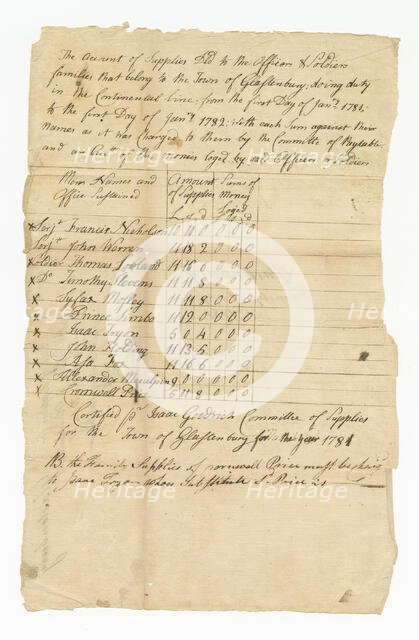 The account of Supplies Dld to the Officers & Soldiers
families that belong to the Town of Glastenbury, doing duty
in the Continental line; from the first Day of Janry 1781,
to the first Day of Janry 1782; with each Sum against their
Names as it was Charged to them by the Committee of Paytable,
and an Acct of the monies loged by said Officers & Soldiers
Mens Names and | Amount | Sums of
Office Sustained | of Supplies | Money
Loged
L s d | L s d
x Serjt Francis Nicholson 11 11 0 0 0 0
x Serjt John Warren 11 18 2 0 0 0
x Thomas Loveland 11 16 6 0 0 0
x Do Timothy Stevens 11 11 8 0 0 0
x Mosley 11 11 8 0 0 0
x Prince Simbo 11 12 0 0 0 0
x Isaac Tryon 5 0 4 0 0 0
x John 11 13 5 0 0 0
x Asa Fox 11 16 6 0 0 0
x Alexander 9 0 0 0 0 0
x Cornwell Price 5 11 8 0 0 0
Certified pr Isaac Goodrich Committee of Supplies
for the Town of Glastenbury for the year 1781
NB. the Family Supplies of Cornwell Price must be
to Isaac Tryon whose Substitute Sd Price is
Heritage
Heritage
Heritage
Heritage
Heritage
Heritage